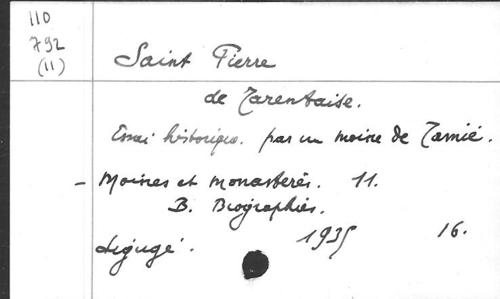 110
792
(11)
Saint Pierre
de Tarentaise.
Essai historique. par un moine de Tamié.
- Moines et monastères. 11.
B. Biographies.
Ligugé. 1935 16.